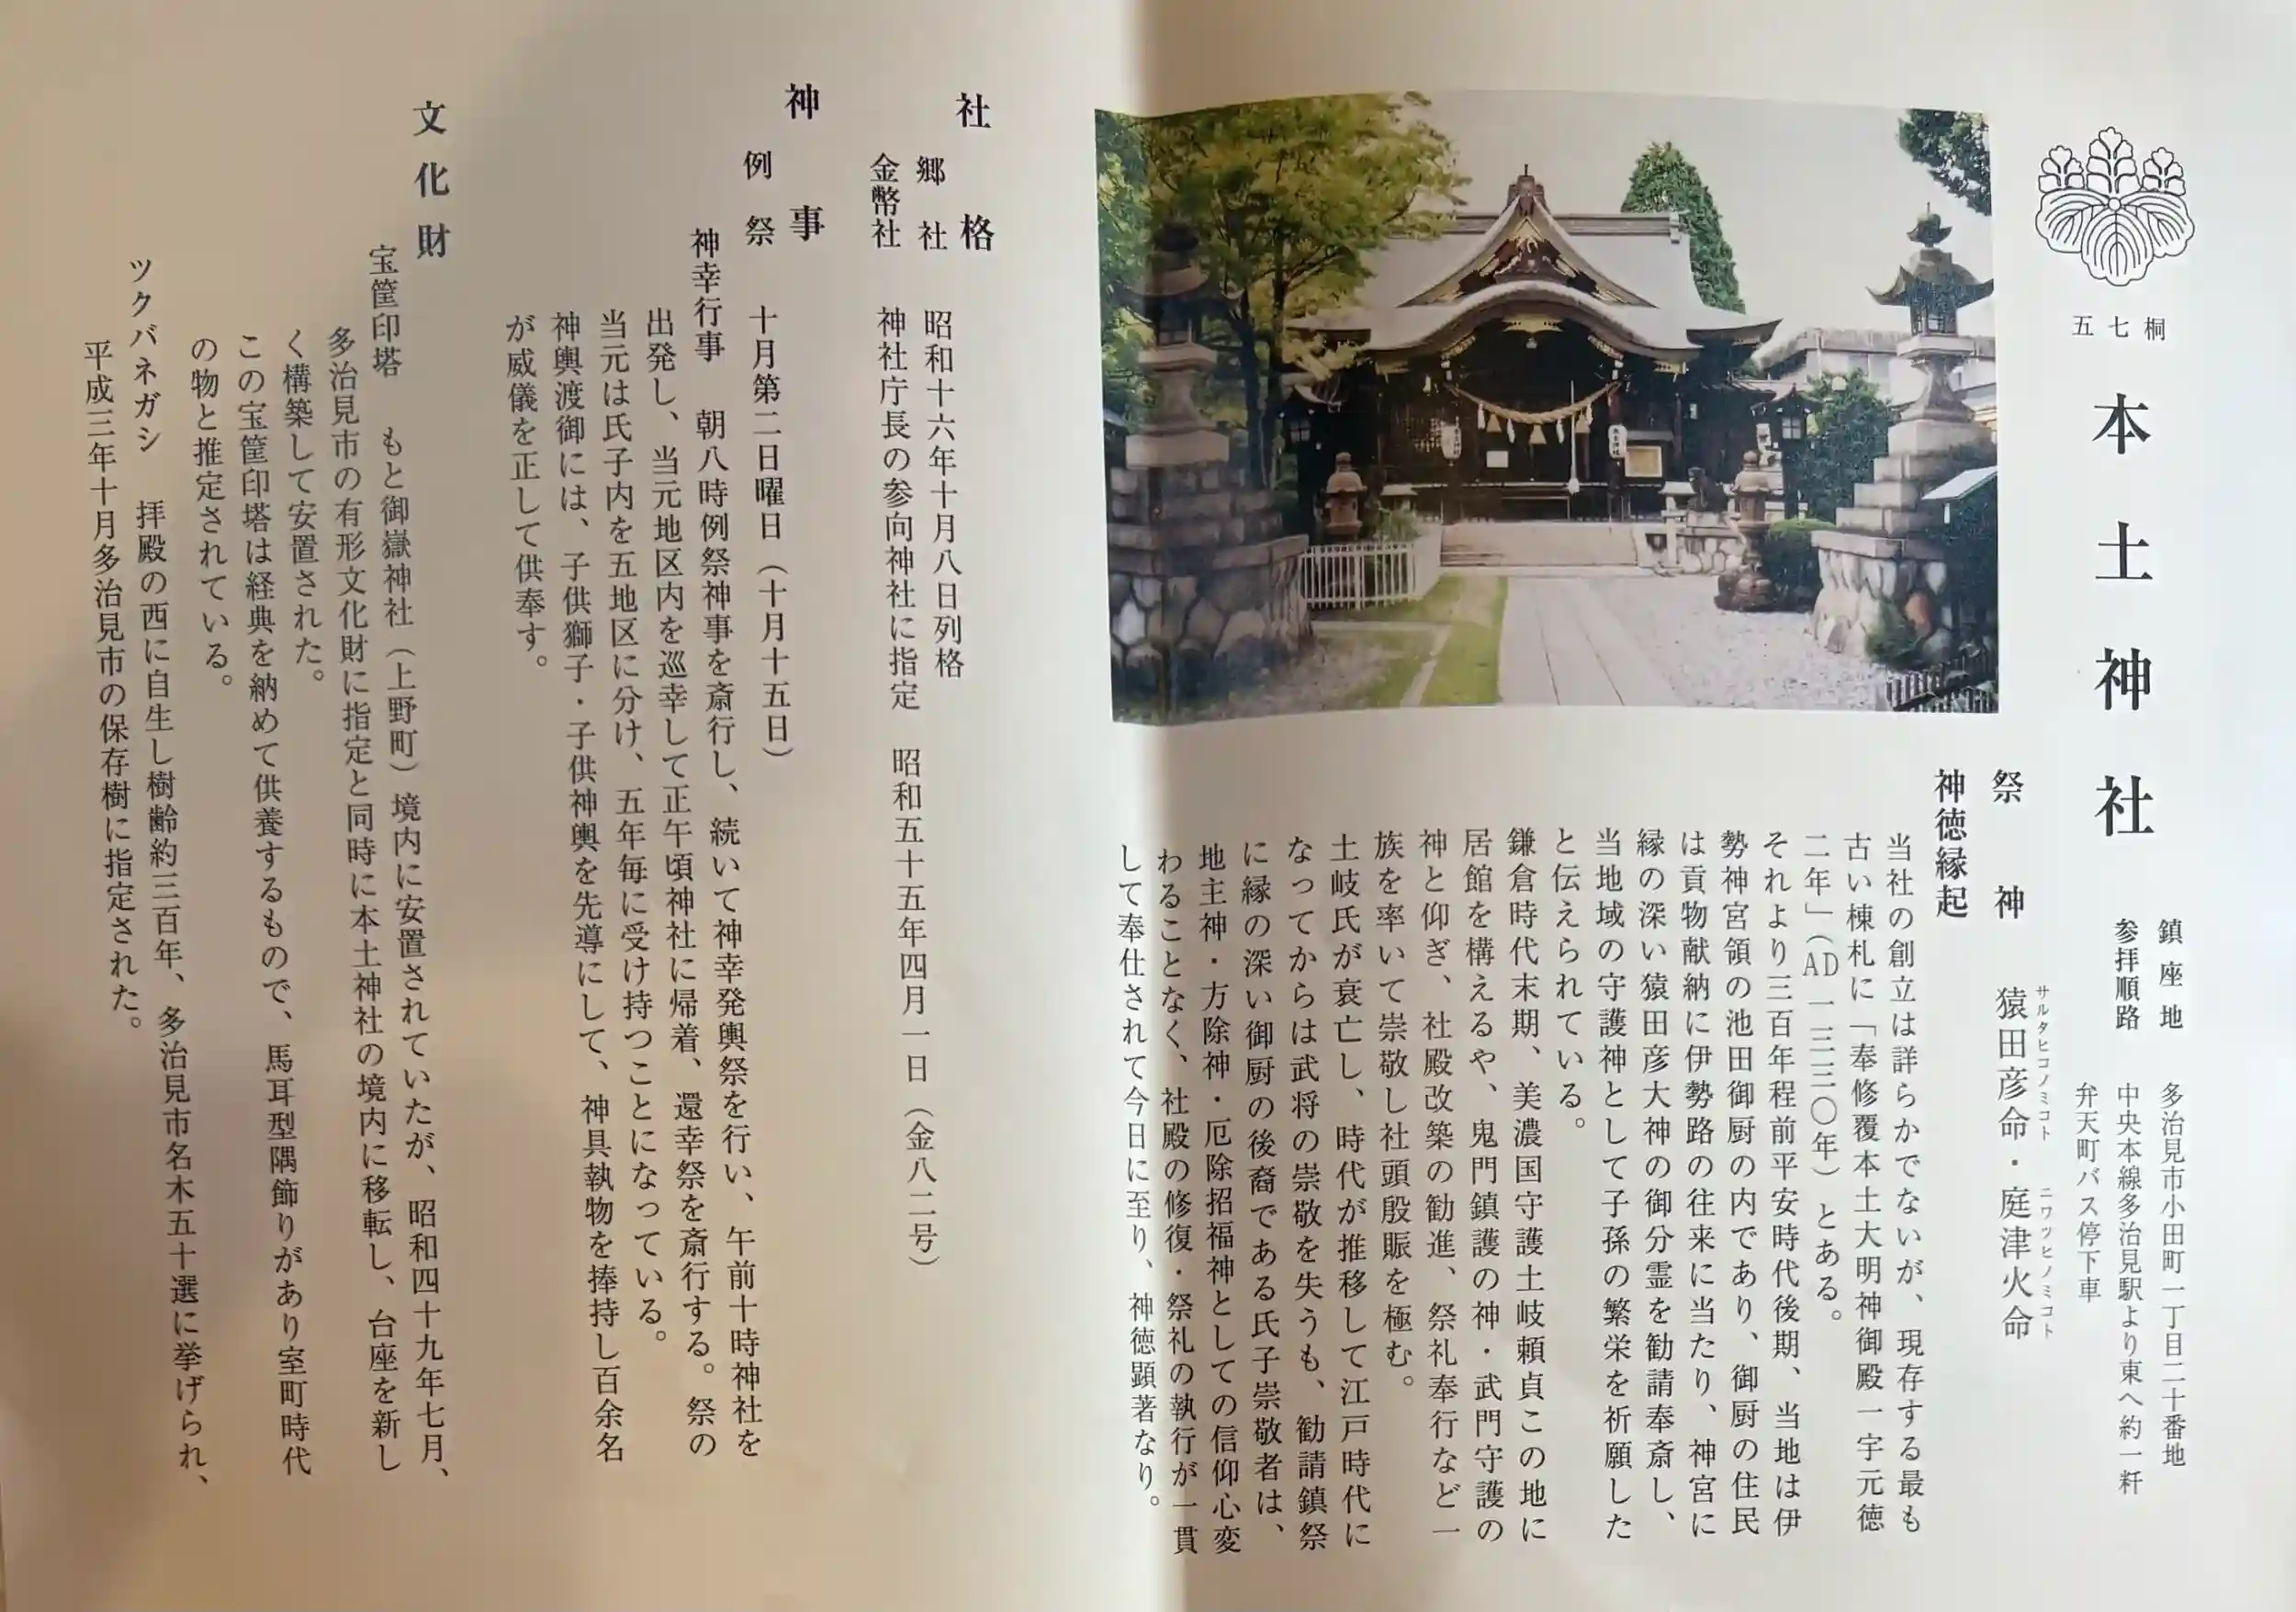 五七桐
本土神社
鎮座地　多治見市小田町一丁目二十番地
参拝順路　中央本線多治見駅より東へ約一粁
弁天町バス停下車
祭神　猿田彦命・庭津火命
サルタヒコノミコト　ニワツヒノミコト
神徳縁起
当社の創立は詳らかでないが、現存する最も
古い棟札に「奉修覆本土大明神御殿一宇元徳
二年」（AD一三三〇年）とある。
それより三百年程前平安時代後期、当地は伊
勢神宮領の池田御厨の内であり、御厨の住民
は貢物献納に伊勢路の往来に当たり、神宮に
縁の深い猿田彦大神の御分霊を勧請奉斎し、
当地域の守護神として子孫の繁栄を祈願した
と伝えられている。
鎌倉時代末期、美濃国守護土岐頼貞この地に
居館を構えるや、鬼門鎮護の神・武門守護の
神と仰ぎ、社殿改築の勧進、祭礼奉行など一
族を率いて崇敬し社頭殷賑を極む。
土岐氏が衰亡し、時代が推移して江戸時代に
なってからは武将の崇敬を失うも、勧請鎮祭
に縁の深い御厨の後裔である氏子崇敬者は、
地主神・方除神・厄除招福神としての信仰心変
わることなく、社殿の修復・祭礼の執行が一貫
して奉仕されて今日に至り、神徳顕著なり。
社格
郷社　昭和十六年十月八日列格
金幣社　神社庁長の参向神社に指定　昭和五十五年四月一日（金八二号）
神事
例祭　十月第二日曜日（十月十五日）
神幸行事　朝八時例祭神事を斎行し、続いて神幸発輿祭を行い、午前十時神社を
出発し、当元地区内を巡幸して正午頃神社に帰着、還幸祭を斎行する。祭の
当元は氏子内を五地区に分け、五年毎に受け持つことになっている。
神輿渡御には、子供獅子・子供神輿を先導にして、神具執物を捧持し百余名
が威儀を正して供奉す。
文化財
宝筐印塔　もと御嶽神社（上野町）境内に安置されていたが、昭和四十九年七月、
多治見市の有形文化財に指定と同時に本土神社の境内に移転し、台座を新し
く構築して安置された。
この宝筐印塔は経典を納めて供養するもので、馬耳型隅飾りがあり室町時代
の物と推定されている。
ツクバネガシ　拝殿の西に自生し樹齢約三百年、多治見市名木五十選に挙げられ、
平成三年十月多治見市の保存樹に指定された。